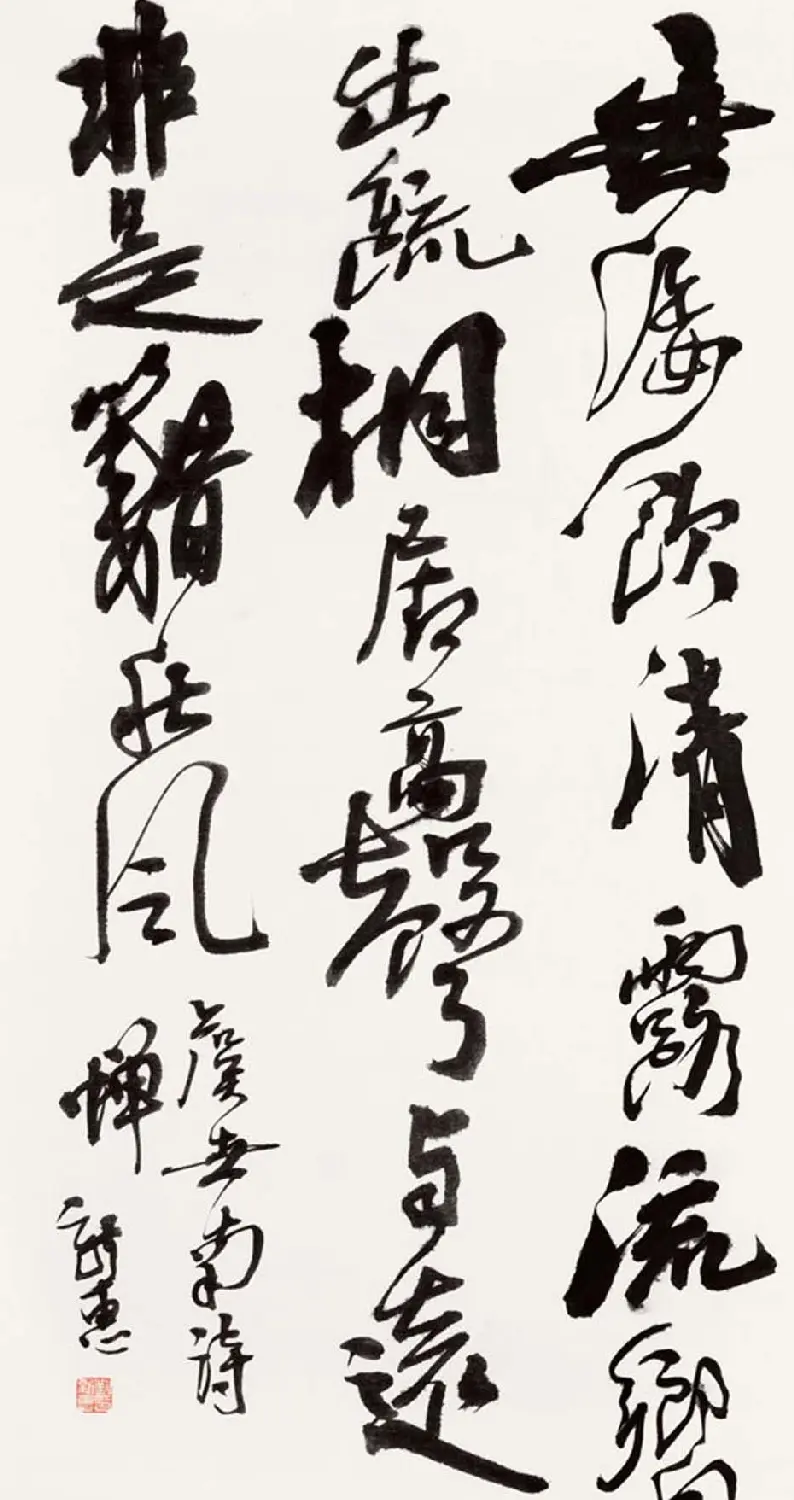 垂緌飲清露流響
出疏桐居高聲自遠
非是藉秋風
虞世南詩
蝉